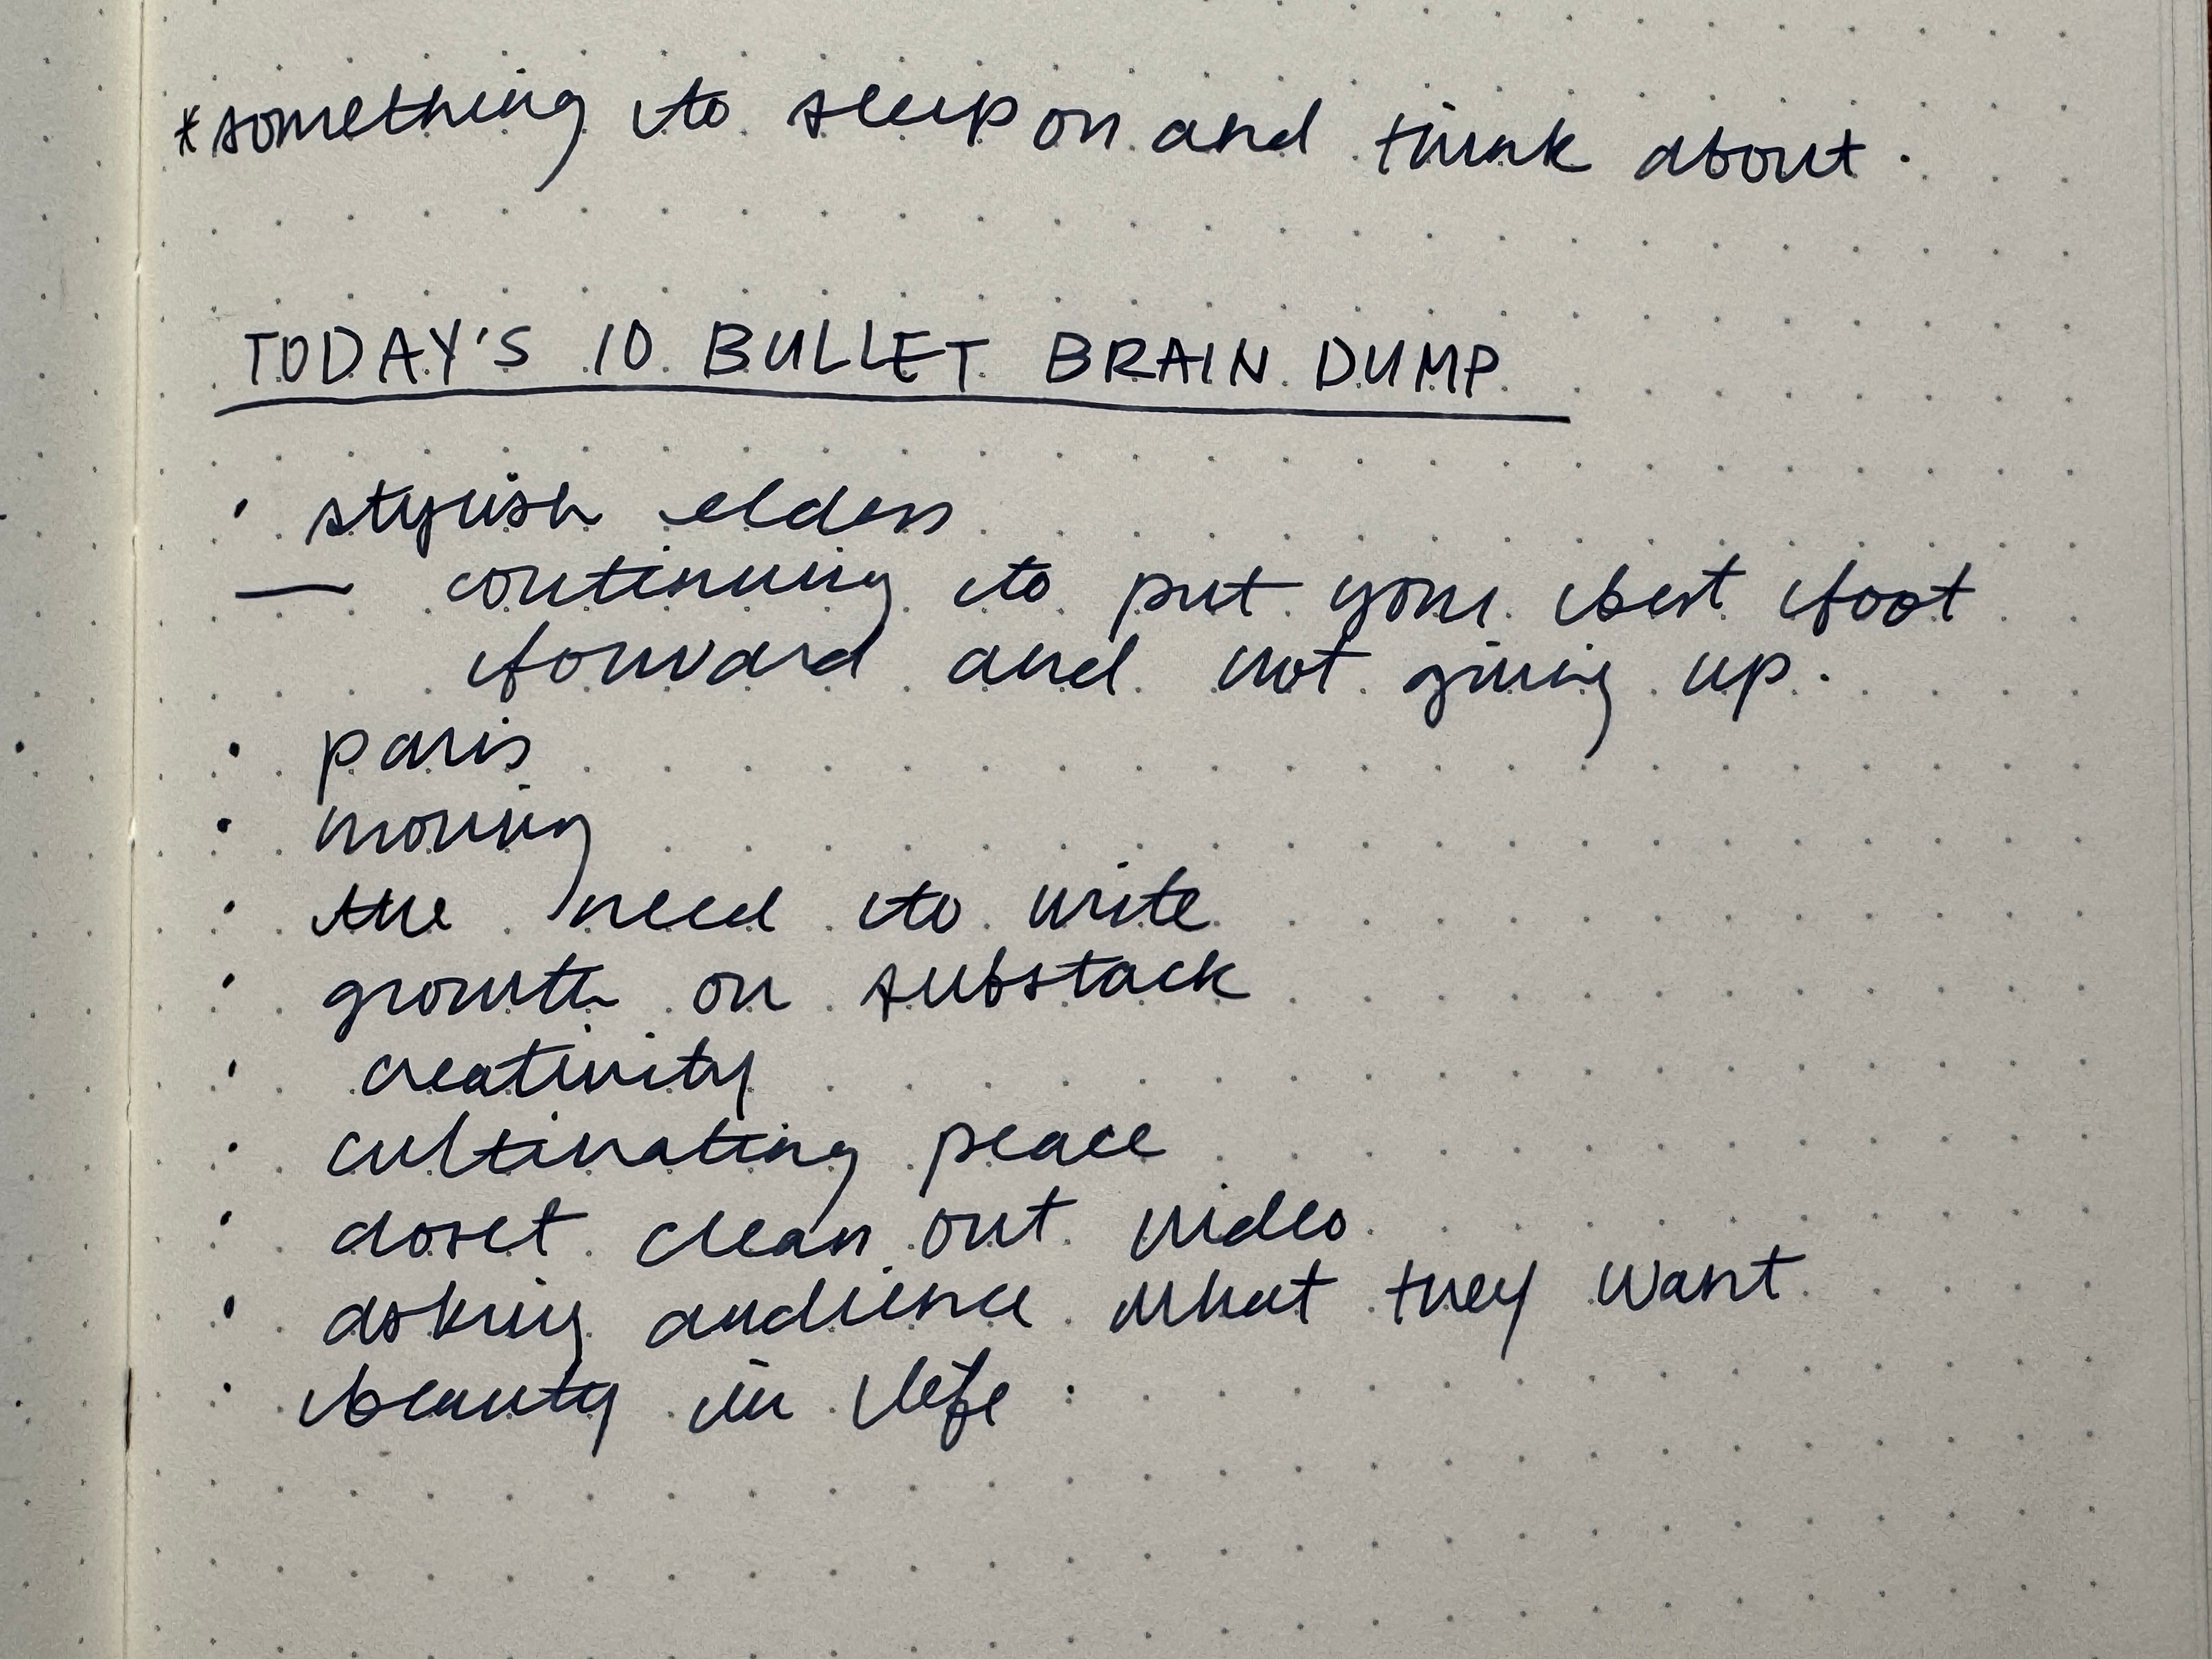 *something to sleep on and think about.
TODAY'S 10 BULLET BRAIN DUMP
• stylish elders
— continuing to put your best foot
forward and not giving up.
• paris
• moving
• the need to write
• growth on substack
• creativity
• cultivating peace
• closet clean out video
• asking audience what they want
• beauty in life